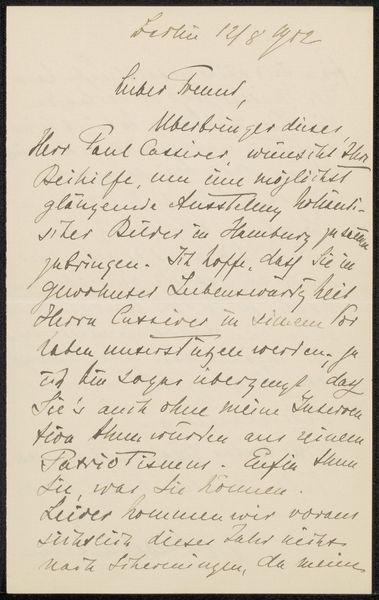 Berlin 12/8 1902
Lieber Freund,
Überbringer dieses,
Herr Paul Cassirer, wünscht Ihre
Beihilfe, um eine möglichst
glänzende Ausstellung holländi-
scher Bilder in Hamburg zusammen
zubringen. Ich hoffe, dass Sie in
gewohnter Liebenswürdigkeit
Herrn Cassirer in seinem Vor
haben unterstützen werden, ja
ich bin sogar überzeugt, dass
Sie's auch ohne meine Interven
tion thun würden aus reinem
Patriotismus. Enfin thun
Sie, was Sie können.
Leider kommen wir voraus
sichtlich dieses Jahr nicht
nach Scheveningen, da meine